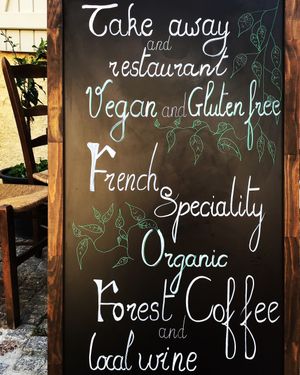 Take away
and
restaurant
Vegan and Gluten free
French
Speciality
Organic
Forest Coffee
and
local wine